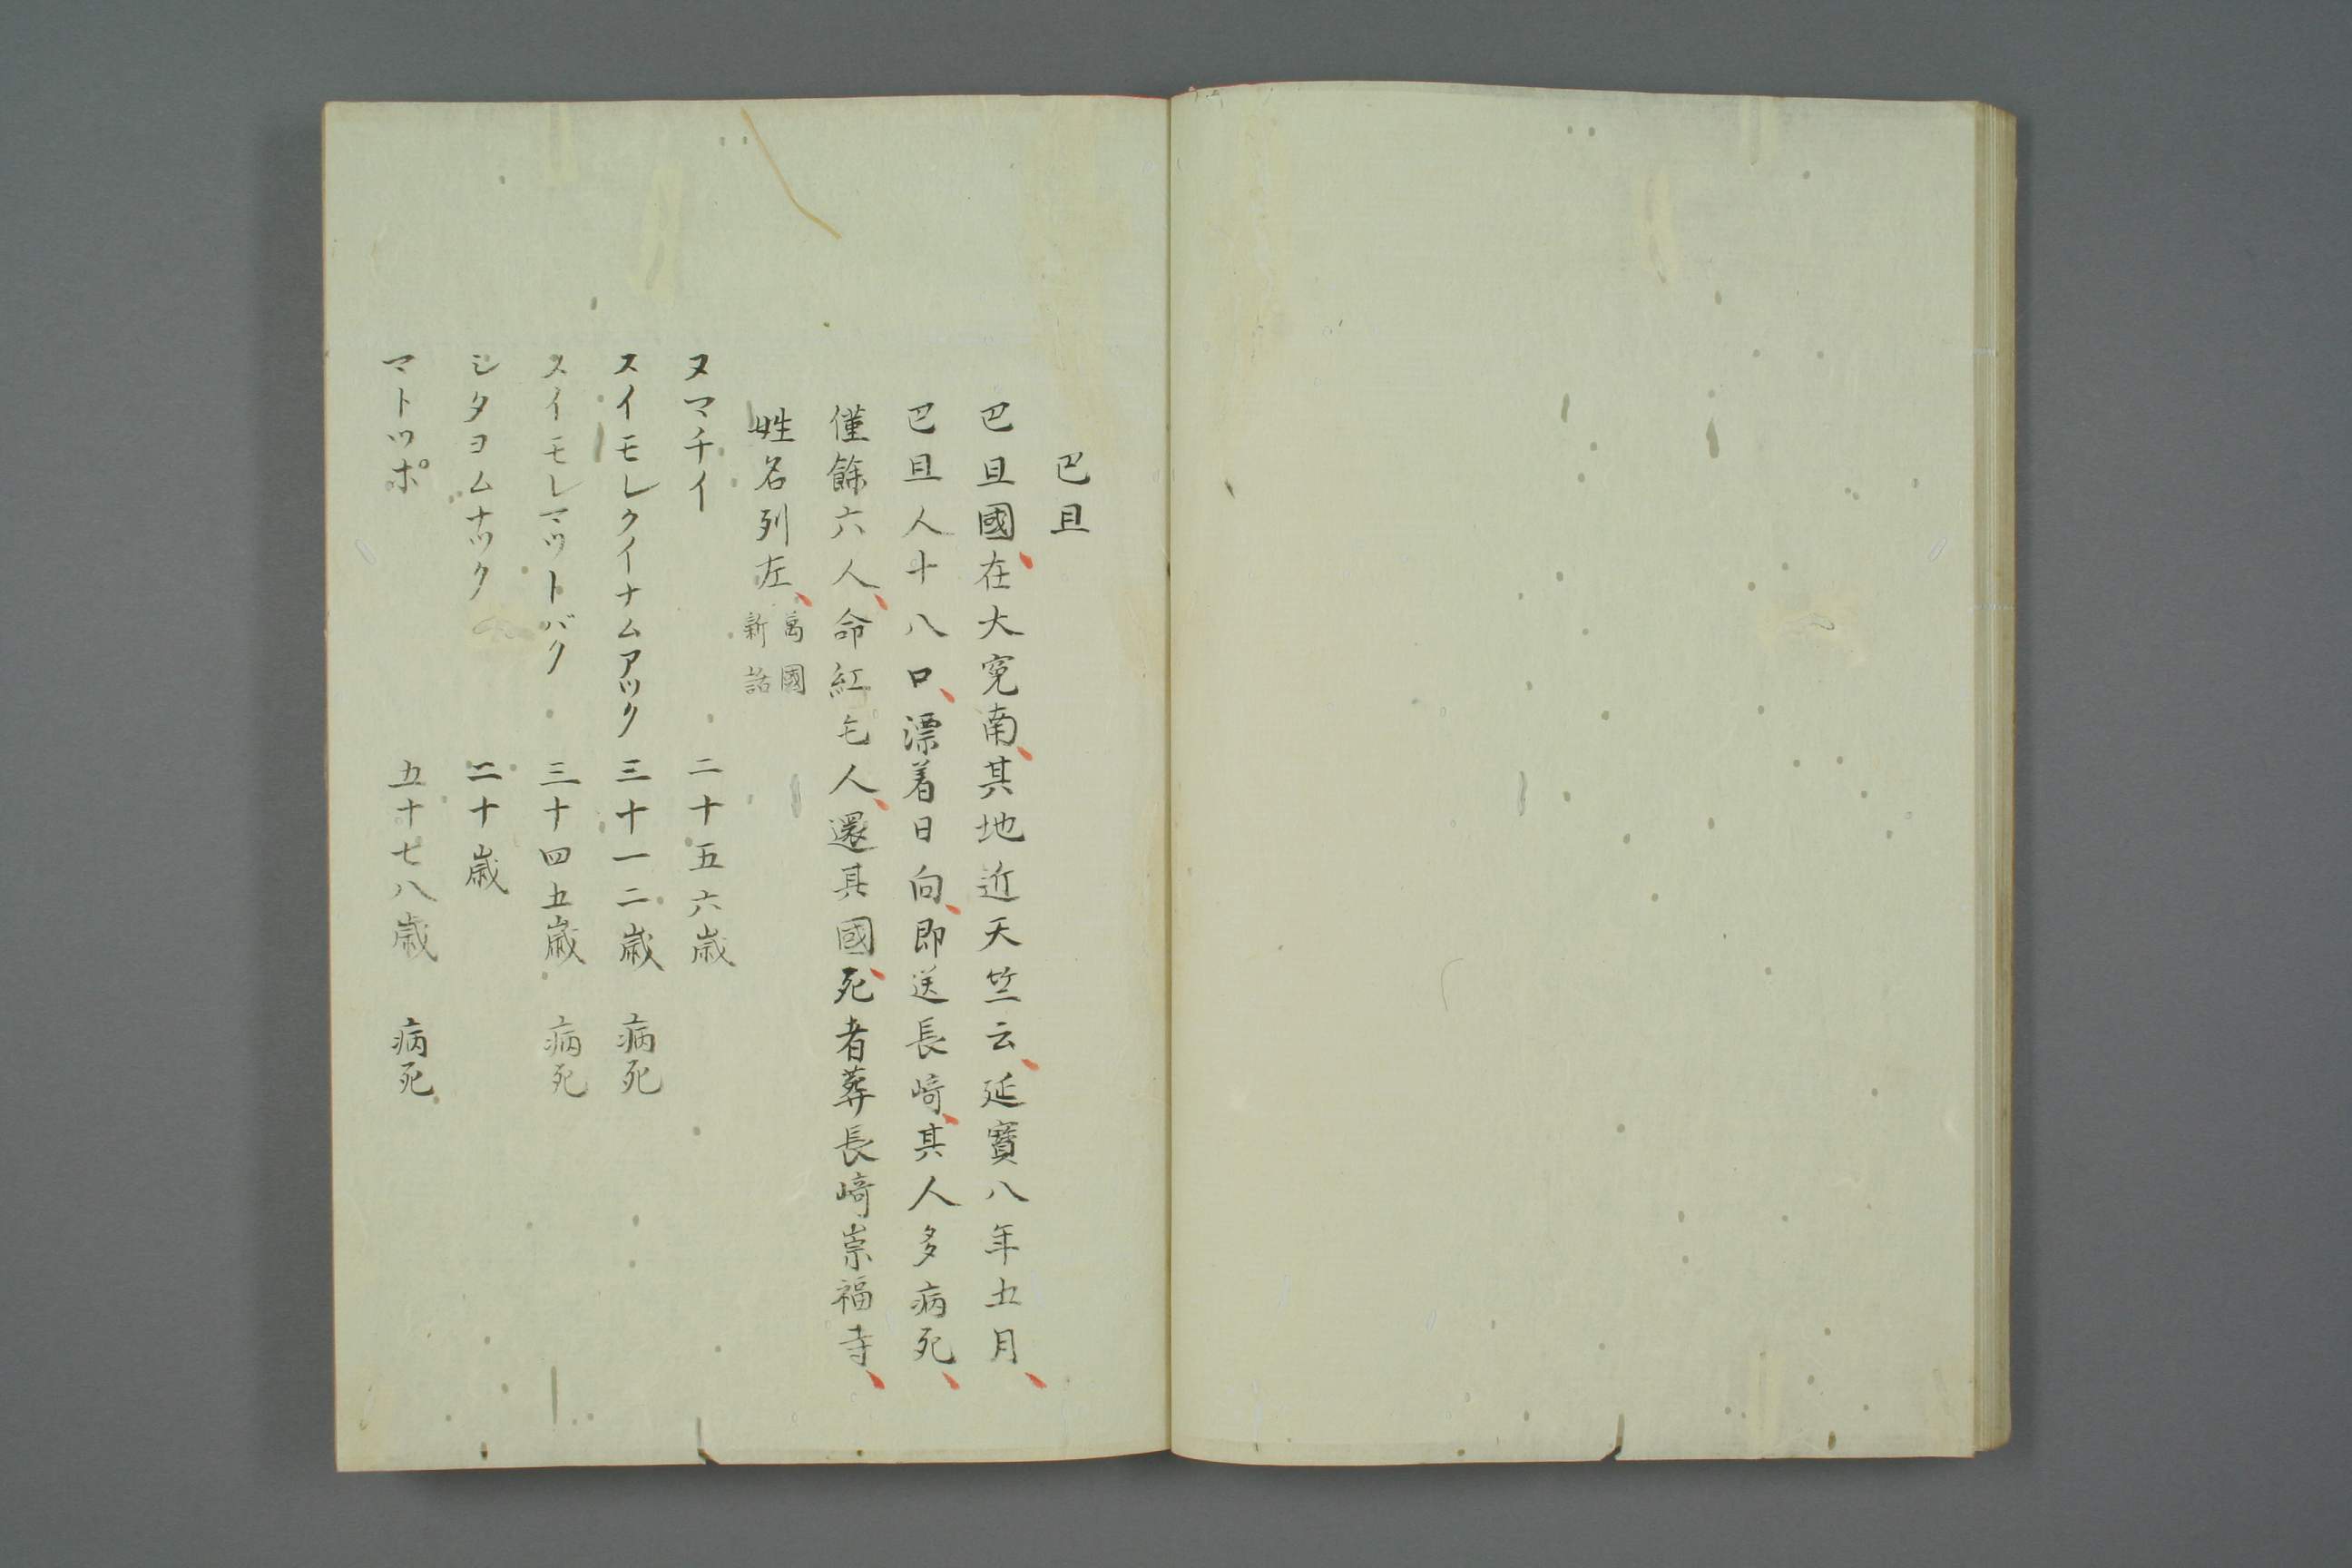 巴且
巴且國、在大寃南、其地近天竺云、延寳八年五月、
巴且人十八口、漂着日向、即送長﨑、其人多病死、
僅餘六人、命紅毛人、還其國、死者葬長﨑崇福寺、
姓名列左、萬國新話
ヌマチイ 二十五六歳
スイモレクイナムアツク 三十一二歳 病死
スイモレマツトバク 三十四五歳 病死
シタヨムナツク 二十歳
マトツポ 五十七八歳 病死